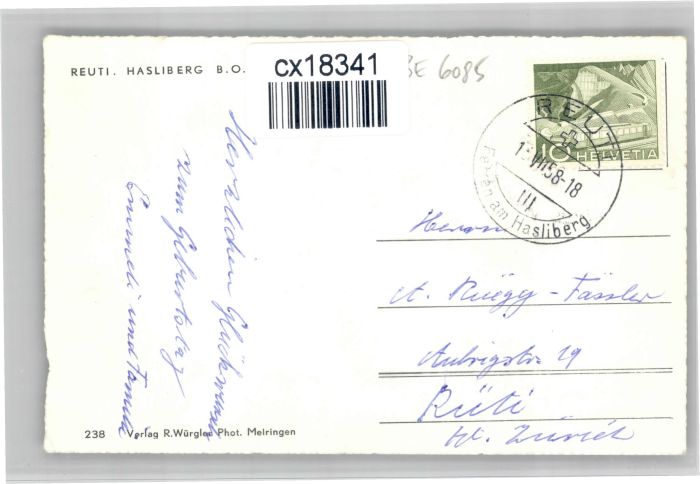 REUTI. HASLIBERG B.O.
cx18341
BE 6085
10 HELVETIA
REUTI
VII 58-18
Ferien am Hasliberg
Herzlichen Glückwunsch
zum Geburtstag
und Familie
Herrn
A. Rüegg-Fässler
19
Rüti
Kt. Zürich
238 Verlag R. Würgler Phot. Meiringen